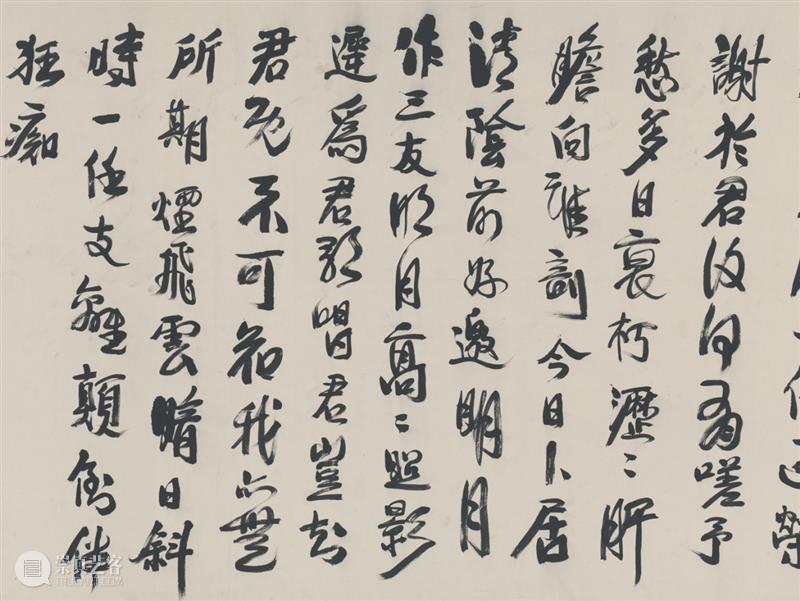 榮
謝於君復何有嗟予
愁多日衰朽瀝〻肝
膽向誰剖今日卜居
清陰前好邀明月
作三友明月高〻照影
遲爲君歌唱君豈知
君既不可知我亦無
所期煙飛雲暗日斜
時一任支離顛倒伴
狂痴
崇真艺客